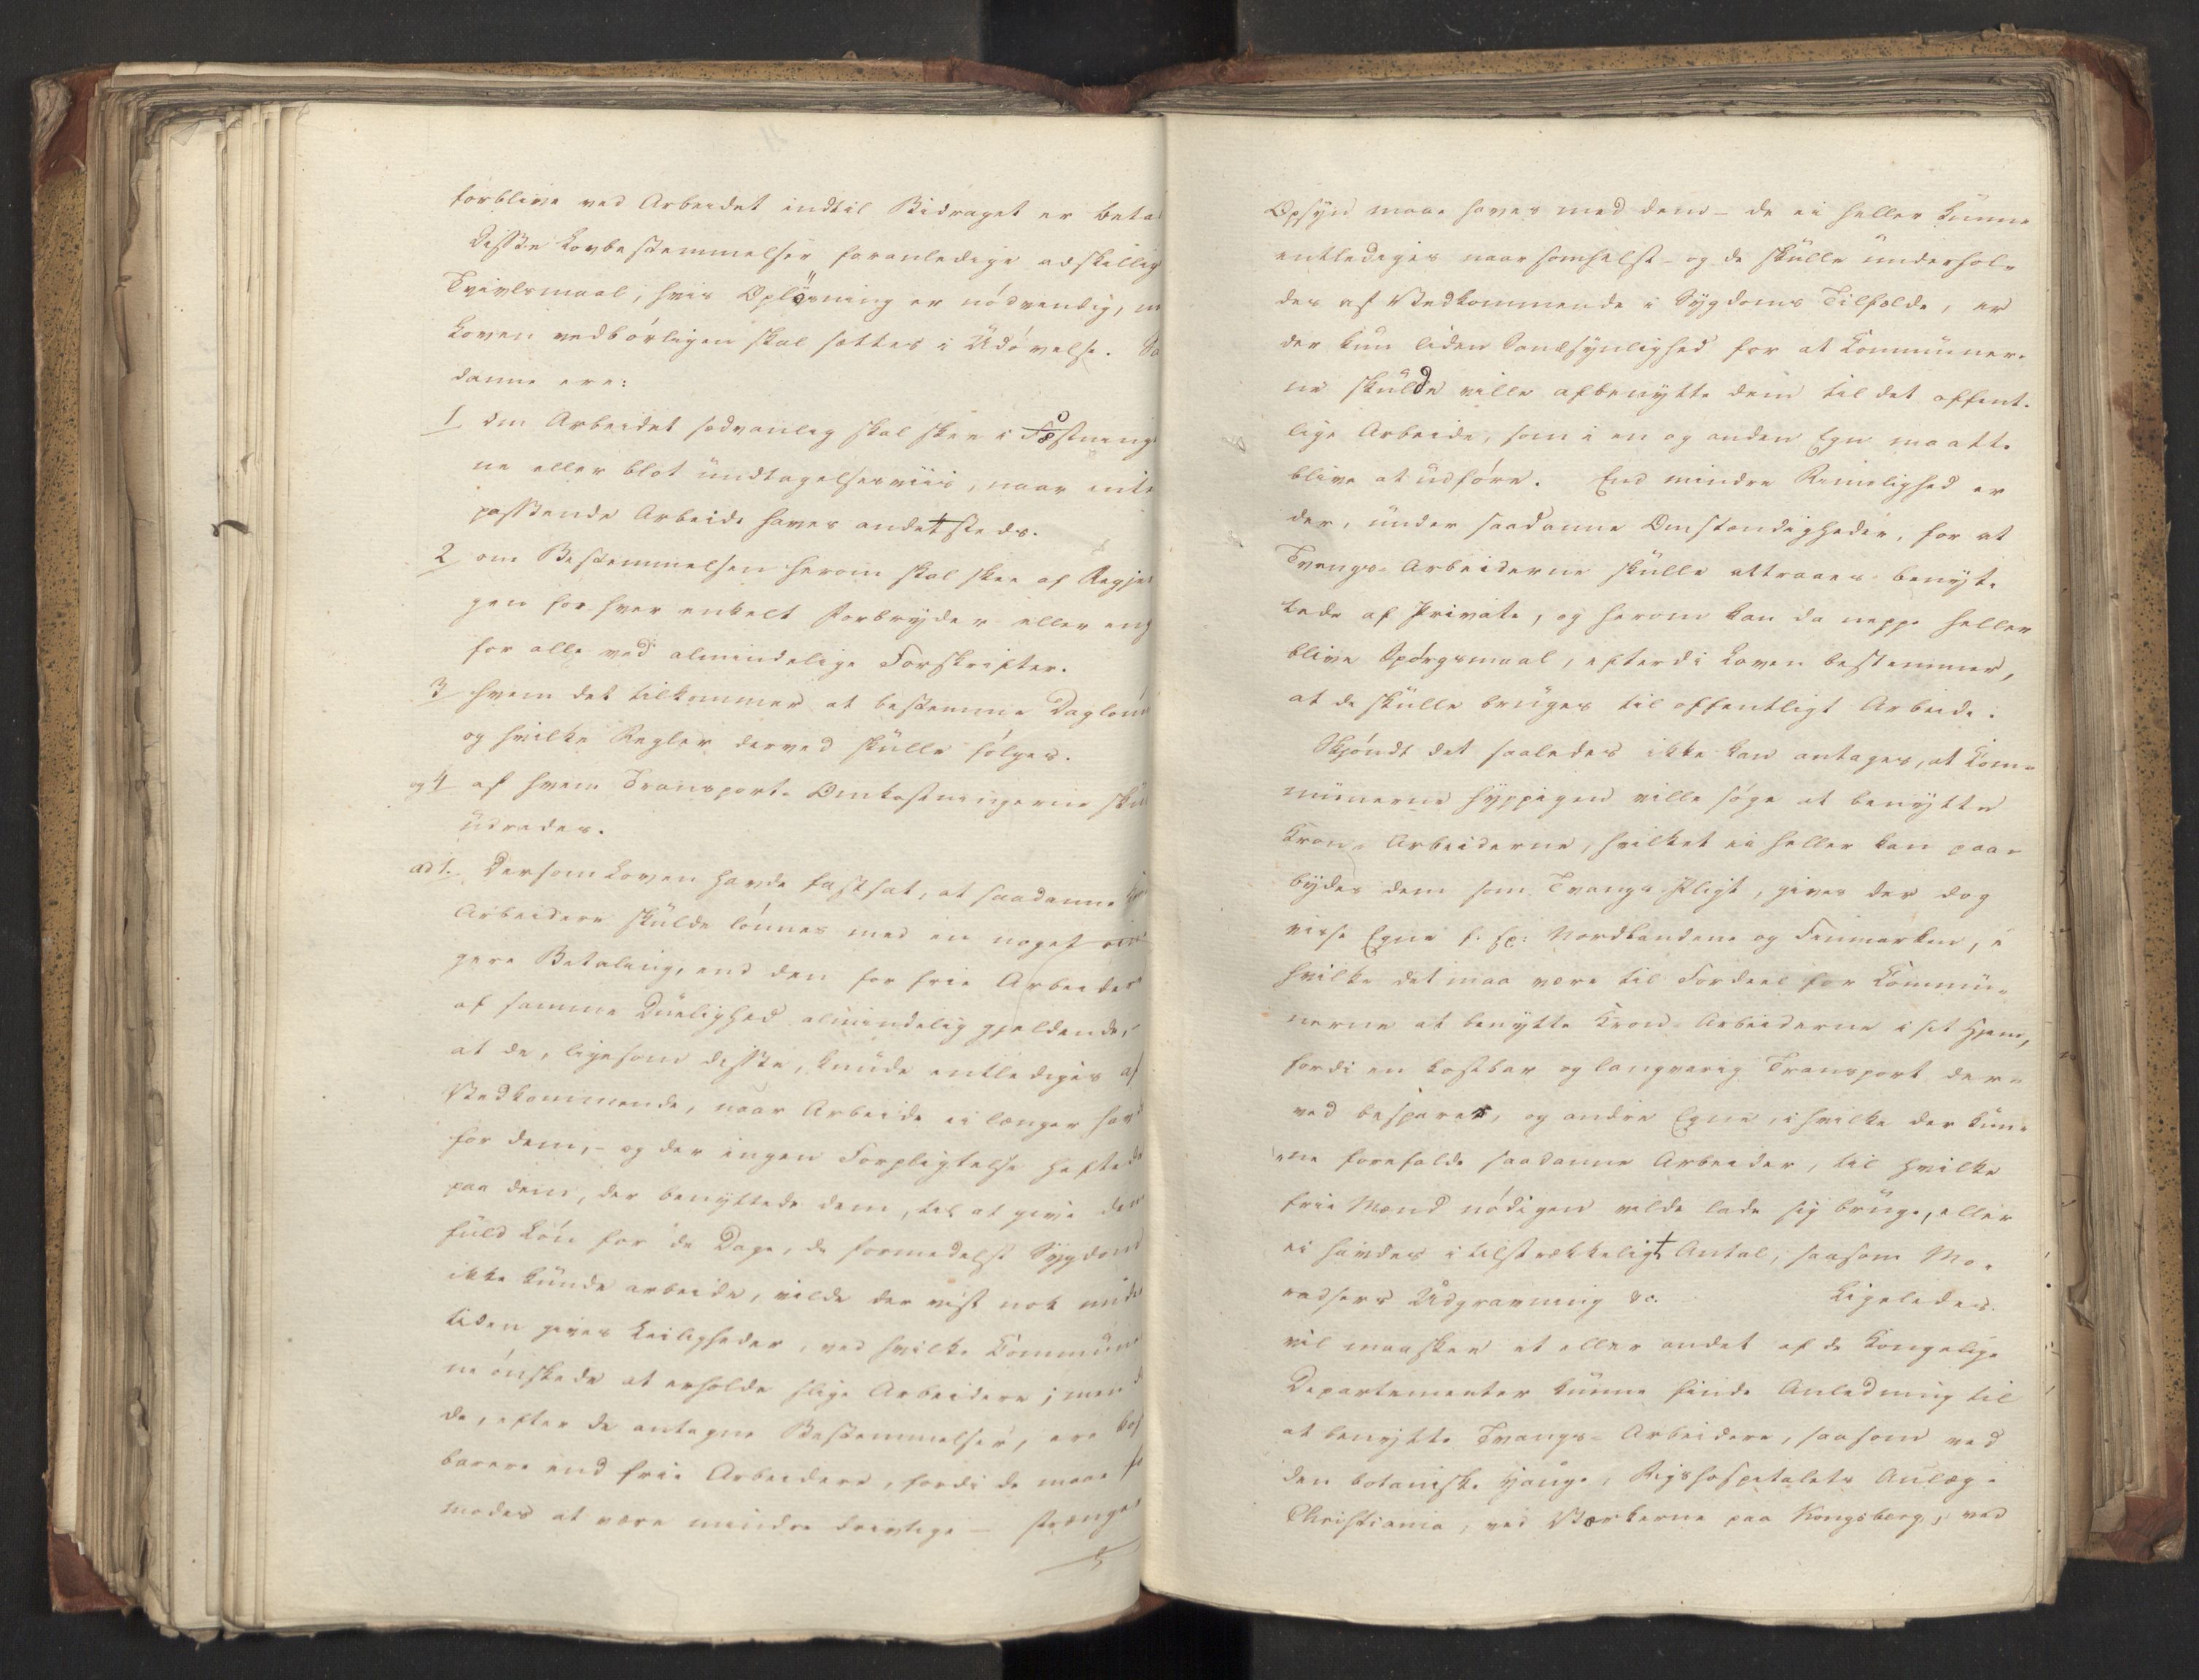 forblive ved Arbeidet indtil Bidraget er beta
Disse Lovbestemmelser foranledige adskillig
Tvivlsmaal, hvis Oplösning er nödvendig, 
Loven vedbörligen skal sættes i Udövelse. Sa
danne ere:
1 om Arbeidet sedvanlig skal skee i Fæstning
ne eller blot undtagelsesviis, naar intet
passende Arbeide haves andetsteds.
2 om Bestemmelsen herom skal skee af Regje
gen for hver enkelt Forbryder eller eng
for alle ved almindelige Forskrifter.
3 hvem det tilkommer at bestemme Daglön
og hvilke Regler derved skulle fölges.
og 4 af hvem Transport-Omkostningerne sku
udredes.
ad 1. Dersom Loven havde fastsat, at saadanne
Arbeidere skulde lönnes med en noget rin
gere Betaling, end den for frie Arbeidere
af samme Duelighed almindelig gjeldende,
at de, ligesom disse, kunde entlediges af
Vedkommende, naar Arbeide ei længer hav
for dem, - og der ingen Forpligtelse heftede
paa dem, der benyttede dem, til at give dem
fuld Lön for de Dage, de formedelst Sygdom
ikke kunde arbeide, vilde der vist nok unde
tiden gives Leiligheder, ved hvilke Commune
ne önskede at erholde slige Arbeidere; men
de, efter de antagne Bestemmelser, ere kost
barere end frie Arbeidere, fordi de maae fo
modes at være mindre drivtige - strænge
Opsyn maae haves med dem - de ei heller kunne
entlediges naarsomhelst - og de skulle underhol-
des af Vedkommende i Sygdoms Tilfælde, er
der kun liden Sandsynlighed for at Communer-
ne skulde ville afbenytte dem til det offent-
lige Arbeide, som i en og anden Egn maatte
blive at udföre. End mindre Rimelighed er
der, under saadanne Omstændigheder, for at
Tvangs-Arbeiderne skulle attraaes benyt-
tede af Private, og herom kan da neppe heller
blive Spörgsmaal, efterdi Loven bestemmer,
at de skulle bruges til offentligt Arbeide.
Skjöndt det saaledes ikke kan antages, at Com-
munerne hyppigen ville söge at benytte
Tvang-Arbeiderne, hvilket ei heller kan paa-
bydes dem som Tvangs-Pligt, gives der dog
visse Egne f. Ex: Nordlandene og Finmarken, i
hvilke det maa være til Fordeel for Commu-
nerne at benytte Tvang-Arbeiderne i sit Hjem,
fordi en kostbar og langvarig Transport der-
ved bespares, og andre Egne, i hvilke der kun-
ne forefalde saadanne Arbeider, til hvilke
frie Mænd nödigen vilde lade sig bruge, eller
ei havdes i tilstrækkeligt Antal, saasom Mo-
radsers Udgravning &c. Ligeledes
vil maaskee et eller andet af de Kongelige
Departementer kunne finde Anledning til
at benytte Tvangs-Arbeidere, saasom ved
den botaniske Hauge, Rigshospitalets Anlæg i
Christiania, ved Værkerne paa Kongsberg, ved